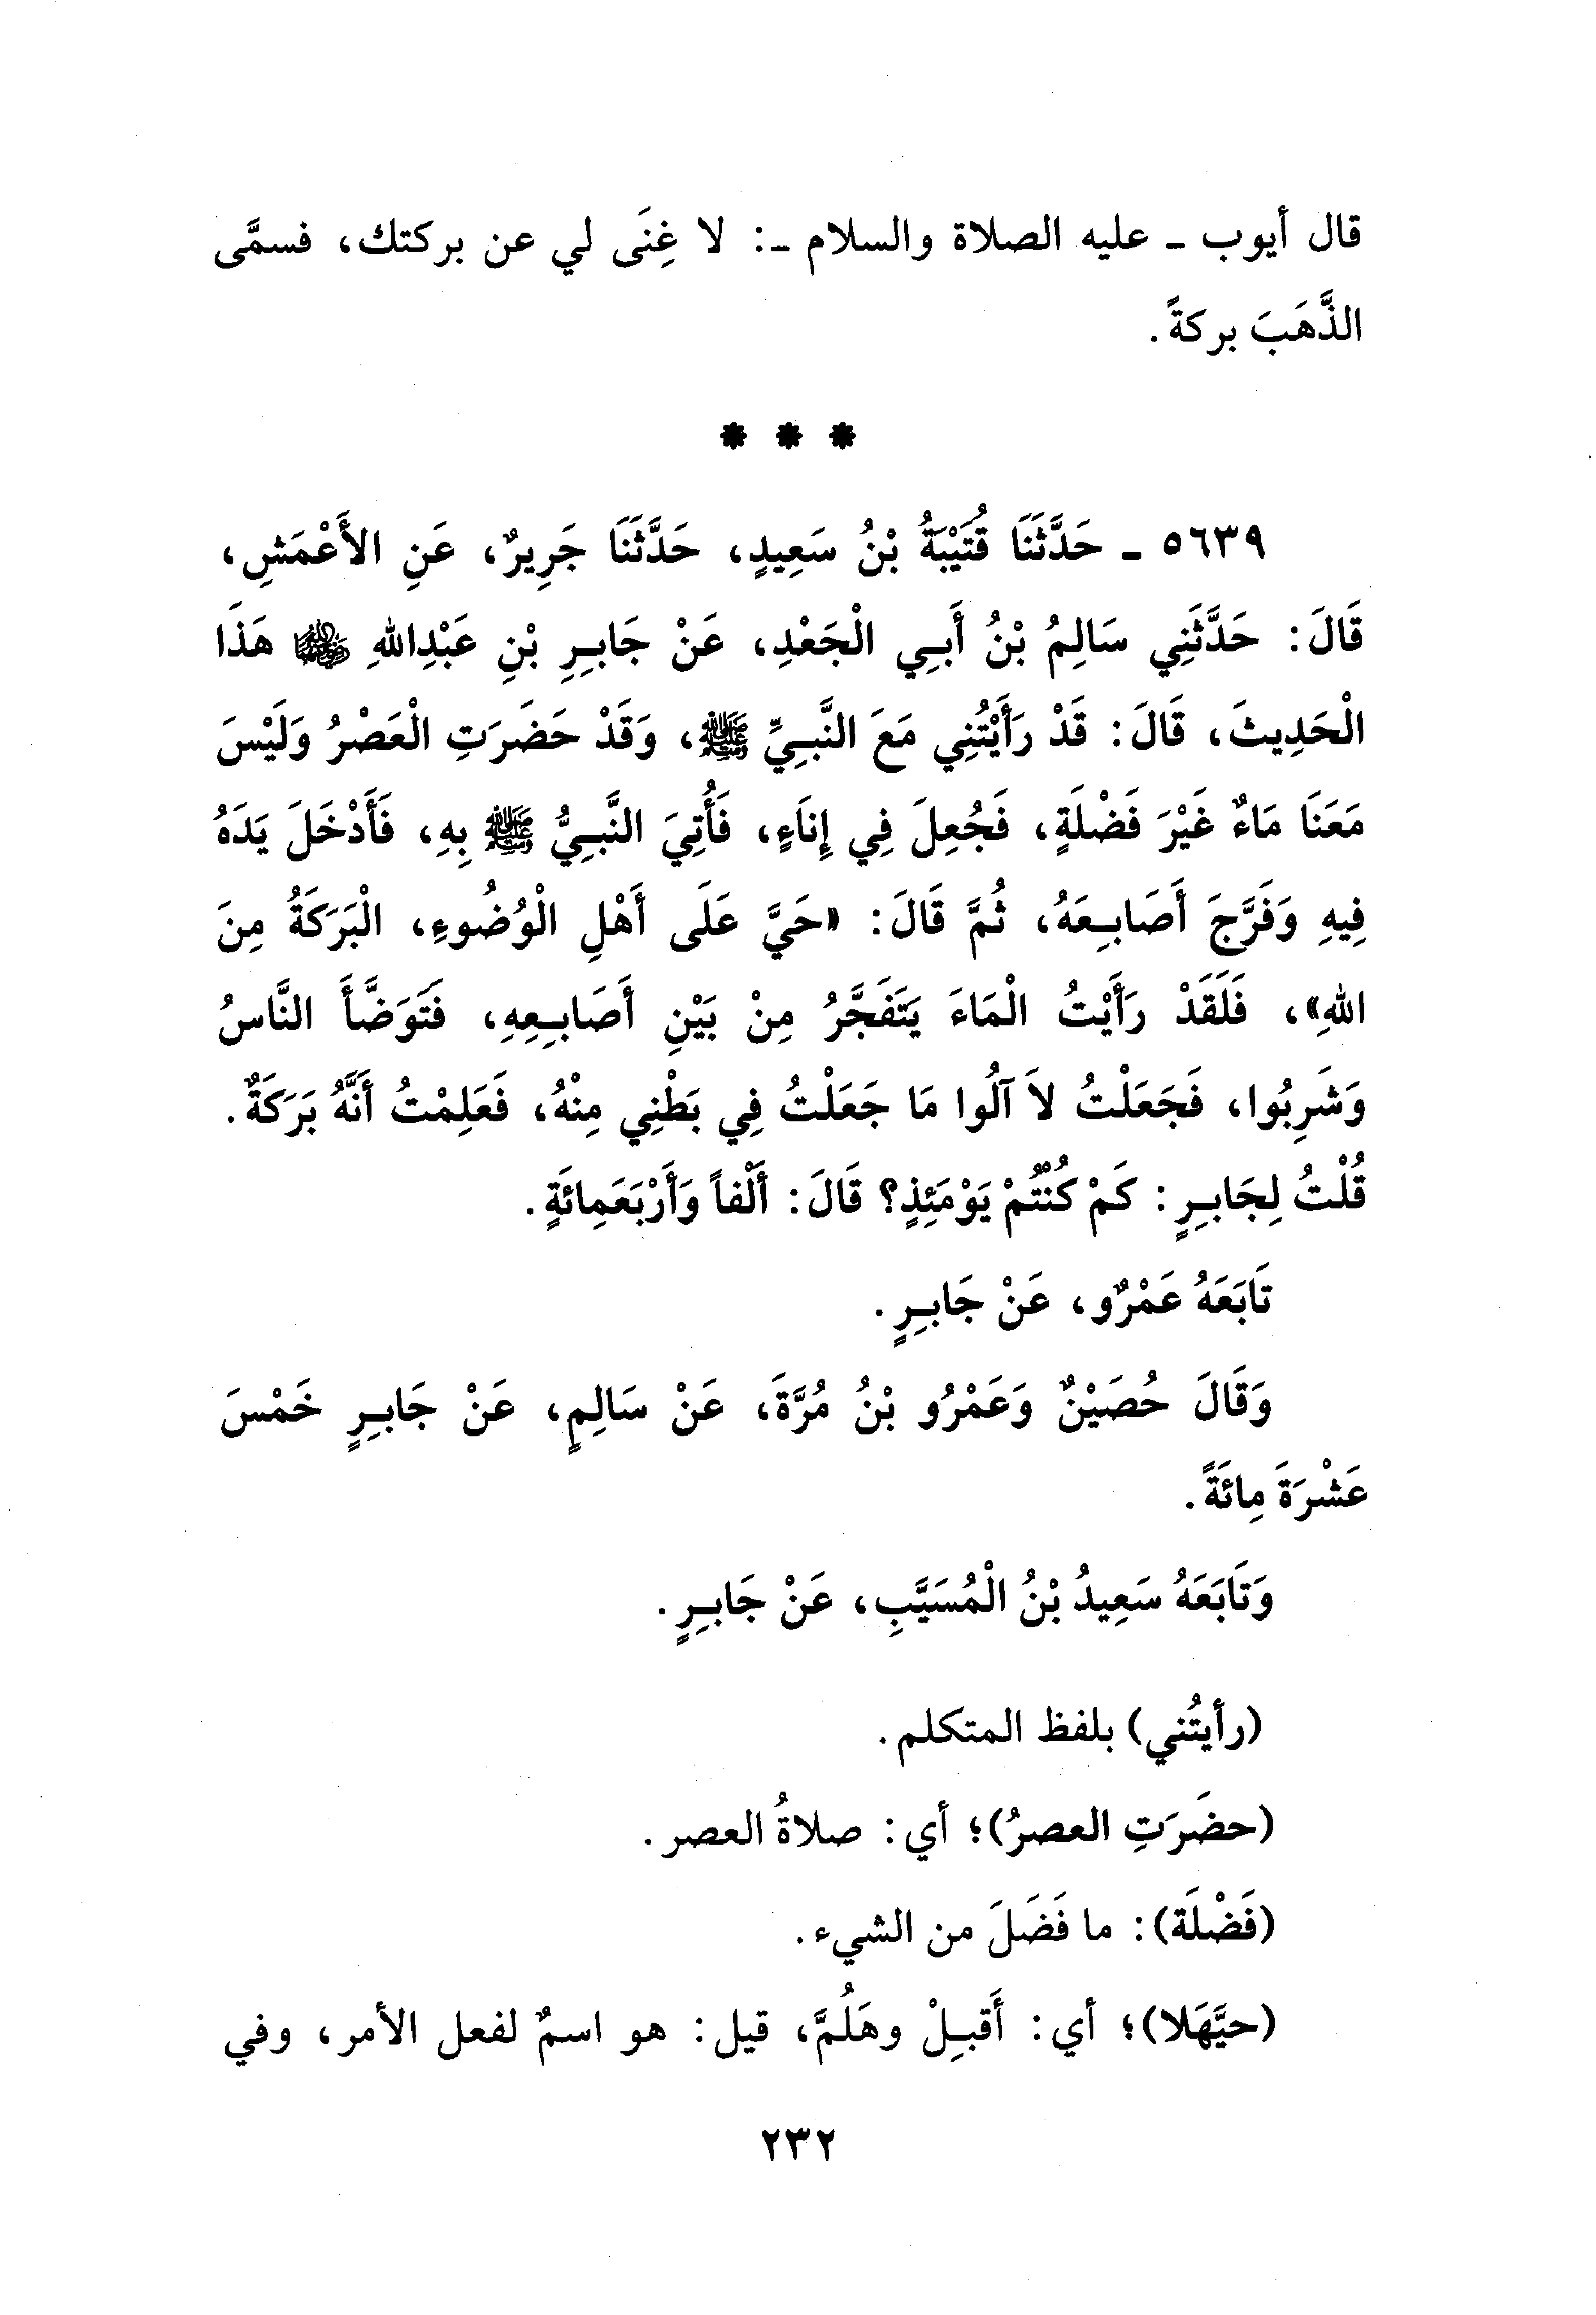 قال أيوب ـ عليه الصلاة والسلام ـ: لا غِنَى لي عن بركتك، فسمَّى
الذَّهَبَ بركةً.
* * *
٥٦٣٩ ـ حَدَّثَنَا قُتَيْبَةُ بْنُ سَعِيدٍ، حَدَّثَنَا جَرِيرٌ، عَنِ الأَعْمَشِ،
قَالَ: حَدَّثَنِي سَالِمُ بْنُ أَبِي الْجَعْدِ، عَنْ جَابِرِ بْنِ عَبْدِاللهِ رضي الله عنهما هَذَا
الْحَدِيثَ، قَالَ: قَدْ رَأَيْتُنِي مَعَ النَّبِيِّ ﷺ، وَقَدْ حَضَرَتِ الْعَصْرُ وَلَيْسَ
مَعَنَا مَاءٌ غَيْرَ فَضْلَةٍ، فَجُعِلَ فِي إِنَاءٍ، فَأُتِيَ النَّبِيُّ ﷺ بِهِ، فَأَدْخَلَ يَدَهُ
فِيهِ وَفَرَّجَ أَصَابِعَهُ، ثُمَّ قَالَ: «حَيَّ عَلَى أَهْلِ الْوُضُوءِ، الْبَرَكَةُ مِنَ
اللهِ»، فَلَقَدْ رَأَيْتُ الْمَاءَ يَتَفَجَّرُ مِنْ بَيْنِ أَصَابِعِهِ، فَتَوَضَّأَ النَّاسُ
وَشَرِبُوا، فَجَعَلْتُ لاَ آلُوا مَا جَعَلْتُ فِي بَطْنِي مِنْهُ، فَعَلِمْتُ أَنَّهُ بَرَكَةٌ.
قُلْتُ لِجَابِرٍ: كَمْ كُنْتُمْ يَوْمَئِذٍ؟ قَالَ: أَلْفاً وَأَرْبَعَمِائَةٍ.
تَابَعَهُ عَمْرٌو، عَنْ جَابِرٍ.
وَقَالَ حُصَيْنٌ وَعَمْرُو بْنُ مُرَّةَ، عَنْ سَالِمٍ، عَنْ جَابِرٍ خَمْسَ
عَشْرَةَ مِائَةً.
وَتَابَعَهُ سَعِيدُ بْنُ الْمُسَيَّبِ، عَنْ جَابِرٍ.
(رأيتُني) بلفظ المتكلم.
(حضَرَتِ العصرُ)؛ أي: صلاةُ العصر.
(فَضْلَة): ما فَضَلَ من الشيء.
(حيَّهَلا)؛ أي: أَقبِلْ وهَلُمَّ، قيل: هو اسمٌ لفعل الأمر، وفي
٢٣٢